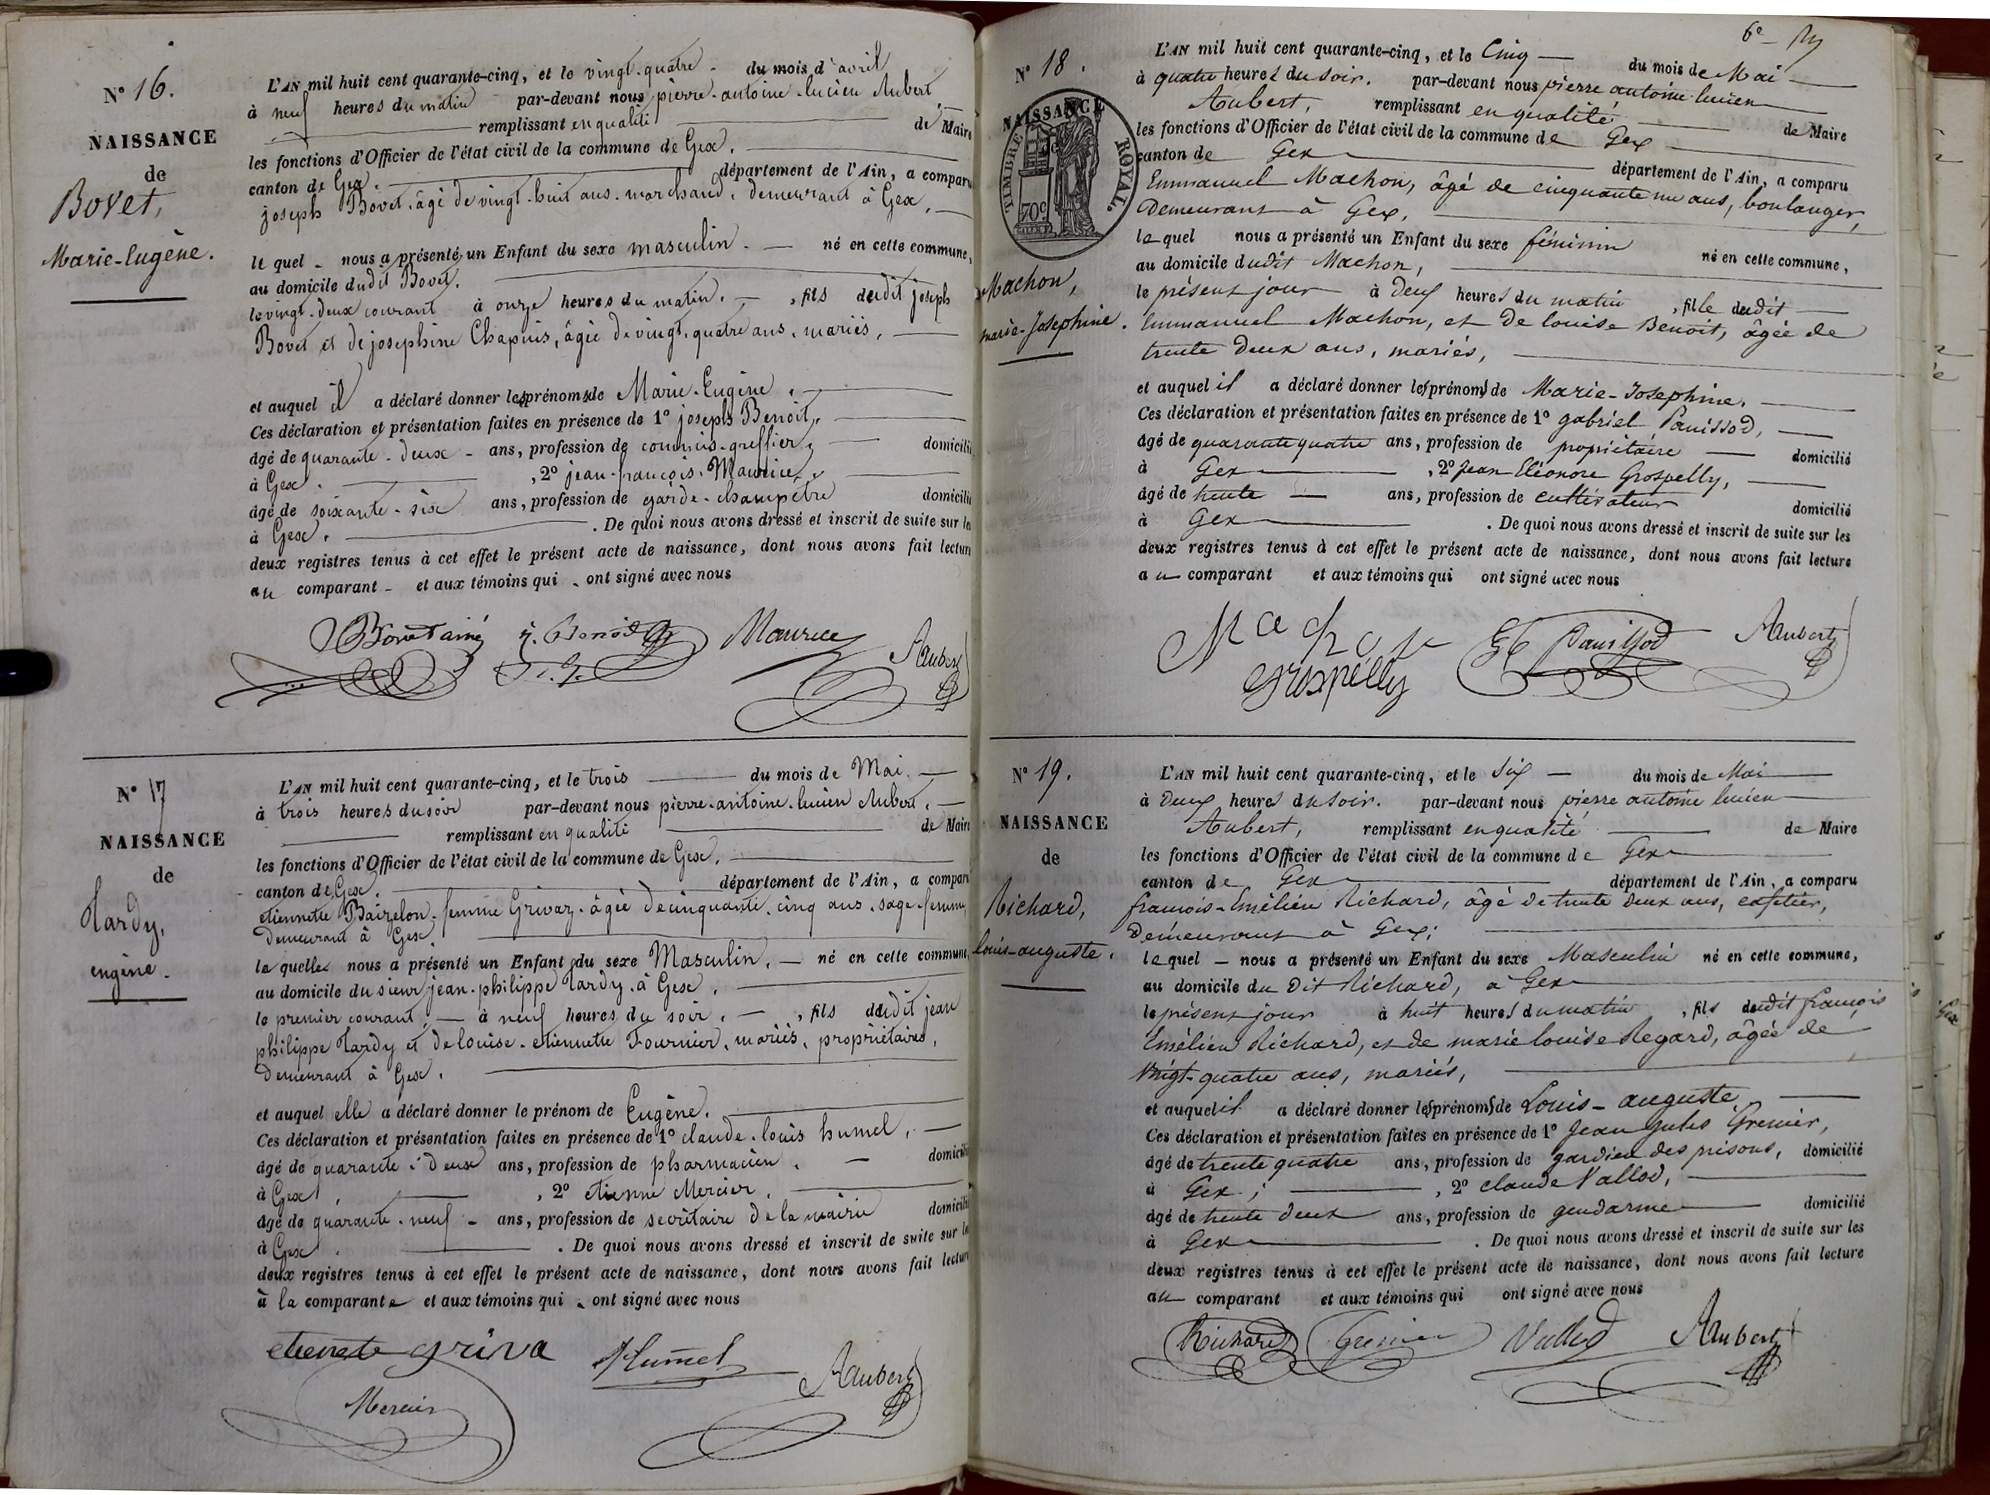 N° 16.
NAISSANCE
de
Bovet,
Marie-Eugène.
L'AN mil huit cent quarante-cinq, et le vingt-quatre - du mois d'avril
à neuf heures du matin par-devant nous pierre-antoine-lucien Aubert
remplissant en qualité de Maire
les fonctions d'Officier de l'état civil de la commune de Gex.
canton de Gex. département de l'Ain, a comparu
joseph Bovet, âgé de vingt-huit ans, marchand, demeurant à Gex,
le quel - nous a présenté un Enfant du sexe masculin. — né en cette commune,
au domicile dudit Bovet.
le vingt-deux courant à onze heures du matin. — , fils dudit joseph
Bovet et de josephine Chapuis, âgée de vingt-quatre ans, mariés,
et auquel il a déclaré donner les prénoms de Marie-Eugène.
Ces déclaration et présentation faites en présence de 1° joseph Benoit,
âgé de quarante-deux - ans, profession de commis-greffier, domicilié
à Gex. , 2° jean-françois-Maurice,
âgé de soixante-six ans, profession de garde-champêtre domicilié
à Gex. . De quoi nous avons dressé et inscrit de suite sur les
deux registres tenus à cet effet le présent acte de naissance, dont nous avons fait lecture
au comparant - et aux témoins qui - ont signé avec nous
Bovet ainé J. Benoit Maurice
Aubert
N° 17
NAISSANCE
de
Tardy,
eugène.
L'AN mil huit cent quarante-cinq, et le trois du mois de Mai.
à trois heures du soir par-devant nous pierre-antoine-lucien Aubert.
remplissant en qualité de Maire
les fonctions d'Officier de l'état civil de la commune de Gex.
canton de Gex. département de l'Ain, a comparu
etiennette Baizelon, femme Grivaz, âgée de cinquante-cinq ans, sage-femme,
demeurant à Gex.
la quelle nous a présenté un Enfant du sexe Masculin. — né en cette commune,
au domicile du sieur jean-philippe Tardy, à Gex.
le premier courant, — à neuf heures du soir. — , fils dudit jean
philippe Tardy et de louise-etiennette Fournier, mariés, propriétaires,
demeurant à Gex.
et auquel elle a déclaré donner le prénom de Eugène.
Ces déclaration et présentation faites en présence de 1° claude-louis humel,
âgé de quarante-deux ans, profession de pharmacien. — domicilié
à Gex, , 2° etienne Mercier,
âgé de quarante-neuf - ans, profession de secrétaire de la mairie domicilié
à Gex. . De quoi nous avons dressé et inscrit de suite sur les
deux registres tenus à cet effet le présent acte de naissance, dont nous avons fait lecture
à la comparante et aux témoins qui - ont signé avec nous
etienete griva Humel Aubert
Mercier
6e
N° 18.
NAISSANCE
TIMBRE ROYAL.
70c
Machon,
marie-Josephine.
L'AN mil huit cent quarante-cinq, et le Cinq — du mois de Mai
à quatre heures du soir. par-devant nous pierre antoine lucien
Aubert, remplissant en qualité de Maire
les fonctions d'Officier de l'état civil de la commune de Gex
canton de Gex département de l'Ain, a comparu
Emmanuel Machon, âgé de cinquante un ans, boulanger,
Demeurant à Gex,
le quel nous a présenté un Enfant du sexe féminin né en cette commune,
au domicile dudit Machon,
le présent jour à deux heures du matin , fille dudit
Emmanuel Machon, et de louise Benoit, âgée de
trente deux ans, mariés,
et auquel il a déclaré donner les prénoms de Marie-Josephine.
Ces déclaration et présentation faites en présence de 1° gabriel Panissod,
âgé de quarante quatre ans, profession de propriétaire domicilié
à Gex , 2° Jean Eléonore Grospelly,
âgé de trente — ans, profession de cultivateur domicilié
à Gex . De quoi nous avons dressé et inscrit de suite sur les
deux registres tenus à cet effet le présent acte de naissance, dont nous avons fait lecture
au comparant et aux témoins qui ont signé avec nous
Machon Panissod Aubert
grospelly
N° 19.
NAISSANCE
de
Richard,
louis-auguste.
L'AN mil huit cent quarante-cinq, et le Six — du mois de Mai
à Deux heures du soir. par-devant nous pierre antoine lucien
Aubert, remplissant en qualité de Maire
les fonctions d'Officier de l'état civil de la commune de Gex
canton de Gex département de l'Ain, a comparu
françois-Emélien Richard, âgé de trente deux ans, cafetier,
Demeurant à Gex;
le quel — nous a présenté un Enfant du sexe Masculin né en cette commune,
au domicile du Dit Richard, à Gex
le présent jour à huit heures du matin , fils dudit françois
Emélien Richard, et de marie louise Regard, âgée de
Vingt-quatre ans, mariés,
et auquel il a déclaré donner les prénoms de Louis-auguste
Ces déclaration et présentation faites en présence de 1° Jean Jules Grenier,
âgé de trente quatre ans, profession de gardien des prisons, domicilié
à Gex; , 2° claude Vallod,
âgé de trente deux ans, profession de gendarme domicilié
à Gex . De quoi nous avons dressé et inscrit de suite sur les
deux registres tenus à cet effet le présent acte de naissance, dont nous avons fait lecture
au comparant et aux témoins qui ont signé avec nous
Richard Grenier Vallod Aubert